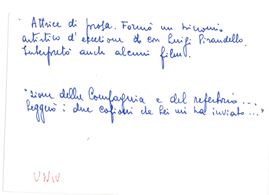 Attrice di prosa. Formò un binomio
artistico d'eccezione con Luigi Pirandello.
Interpretò anch alcuni film.
"sione della Compagnia e del repertorio ...
leggerò i due copioni che Lei mi ha inviato ...
UNIV